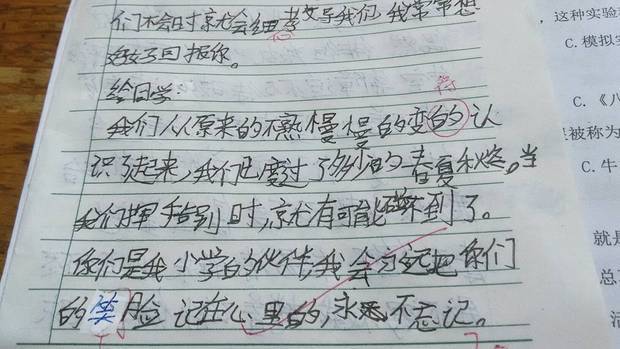 们不会时就会细心教导我们,我常常想
这样了回报你。
给同学:
我们从原来的不熟慢慢的变的认
得
识了起来,我们已度过了多少的春夏秋冬。当
我们挥手告别时,就有可能碰不到了。
你们是我小学的伙伴,我会永远把你们
的笑脸记在心里的,永远不忘记。
,这种实验
C.模拟实
C.《八
被称为
C.牛
就是
总